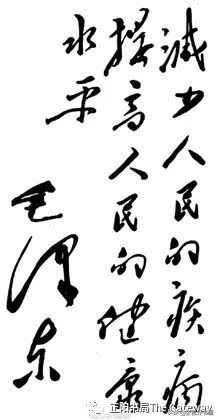 减少人民的疾病
提高人民的健康
水平
毛泽东
正阳书局The Gateway